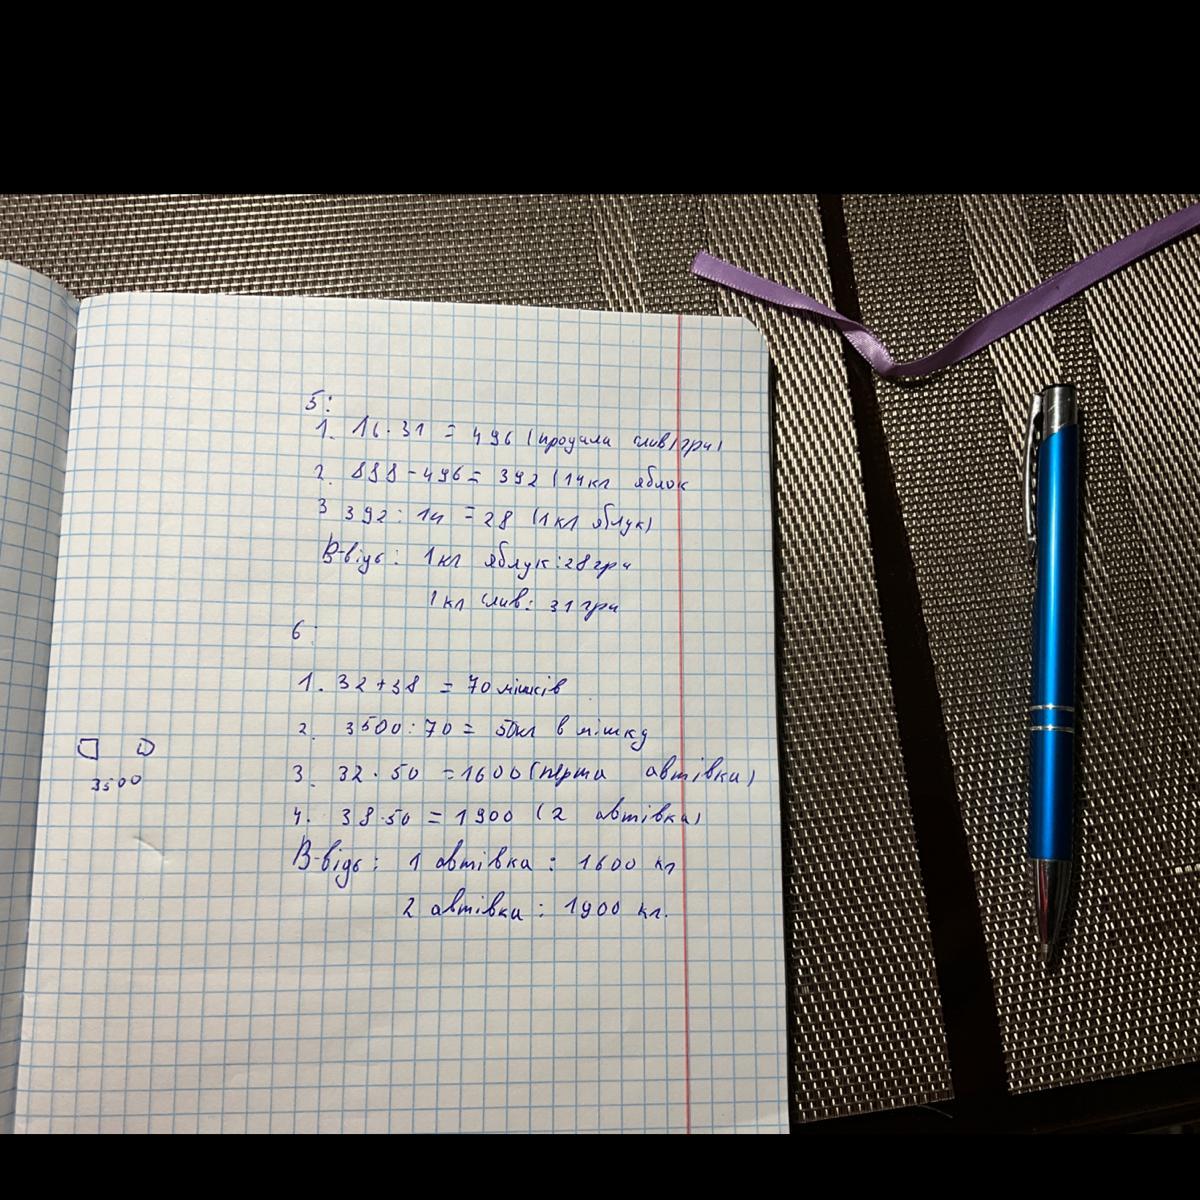 5:
1. 16·31 = 496 (продали слив/грн)
2. 888-496 = 392 (14кл яблок
3 392:14 = 28 (1кл яблук)
В-відь: 1кл яблук:28грн
1кл слив: 31грн
6:
1. 32+38 = 70 мішків
2. 3500:70 = 50кл в мішку
3. 32·50 = 1600 (перша автівка)
4. 38·50 = 1900 (2 автівка)
В-відь: 1 автівка: 1600 кл
2 автівка: 1900 кл.
3500